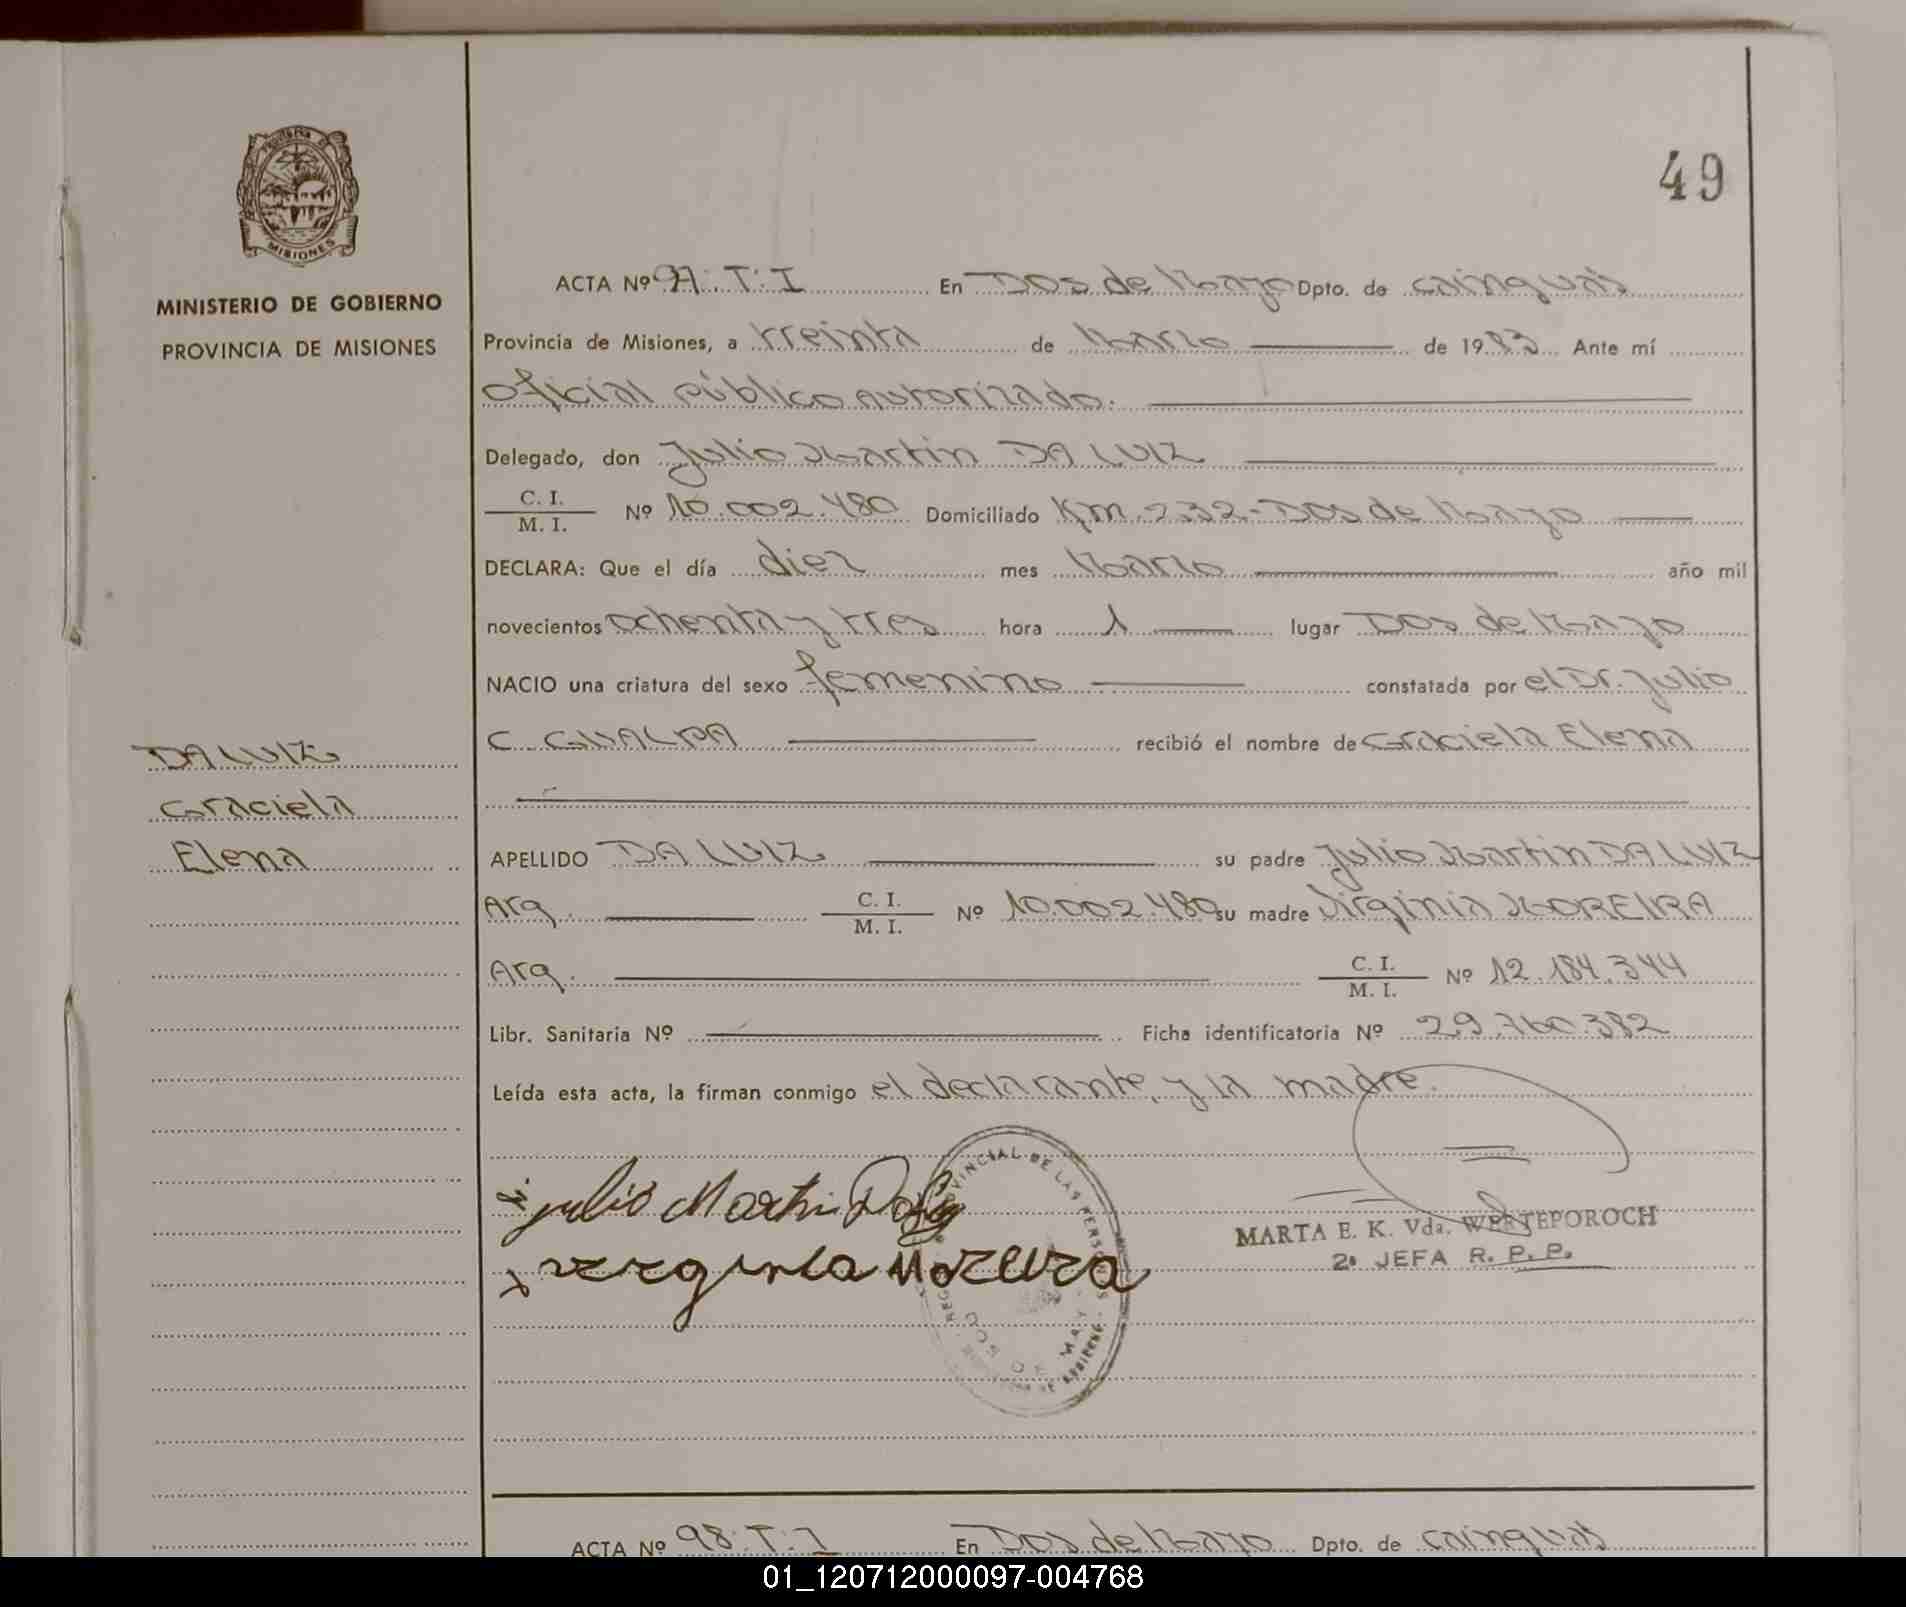 49
MISIONES
MINISTERIO DE GOBIERNO
PROVINCIA DE MISIONES
ACTA Nº 97.T.I En Dos de Mayo Dpto. de Cainguás
Provincia de Misiones, a treinta de Marzo de 1983 Ante mí
Oficial público autorizado.
Delegado, don Julio Martin DA LUIZ
C. I.
M. I.
Nº 10.002.480 Domiciliado Km. 232-Dos de Mayo
DECLARA: Que el día diez mes Marzo año mil
novecientos ochenta y tres hora 1 lugar Dos de Mayo
NACIO una criatura del sexo femenino constatada por el Dr. Julio
C. GUALPA recibió el nombre de Graciela Elena
DA LUIZ
Graciela
Elena
APELLIDO DA LUIZ su padre Julio Martin DA LUIZ
Arg. C. I. M. I. Nº 10.002.480 su madre Virginia MOREIRA
Arg. C. I. M. I. Nº 12.184.344
Libr. Sanitaria Nº Ficha identificatoria Nº 29.760.382
Leída esta acta, la firman conmigo el declarante, y la madre.
julio Martin
verginia Moreira
MARTA E. K. Vda. WERTEPOROCH
2ª JEFA R. P. P.
DOS DE MAYO
ACTA Nº 98.T.I En Dos de Mayo Dpto. de Cainguás
01_120712000097-004768